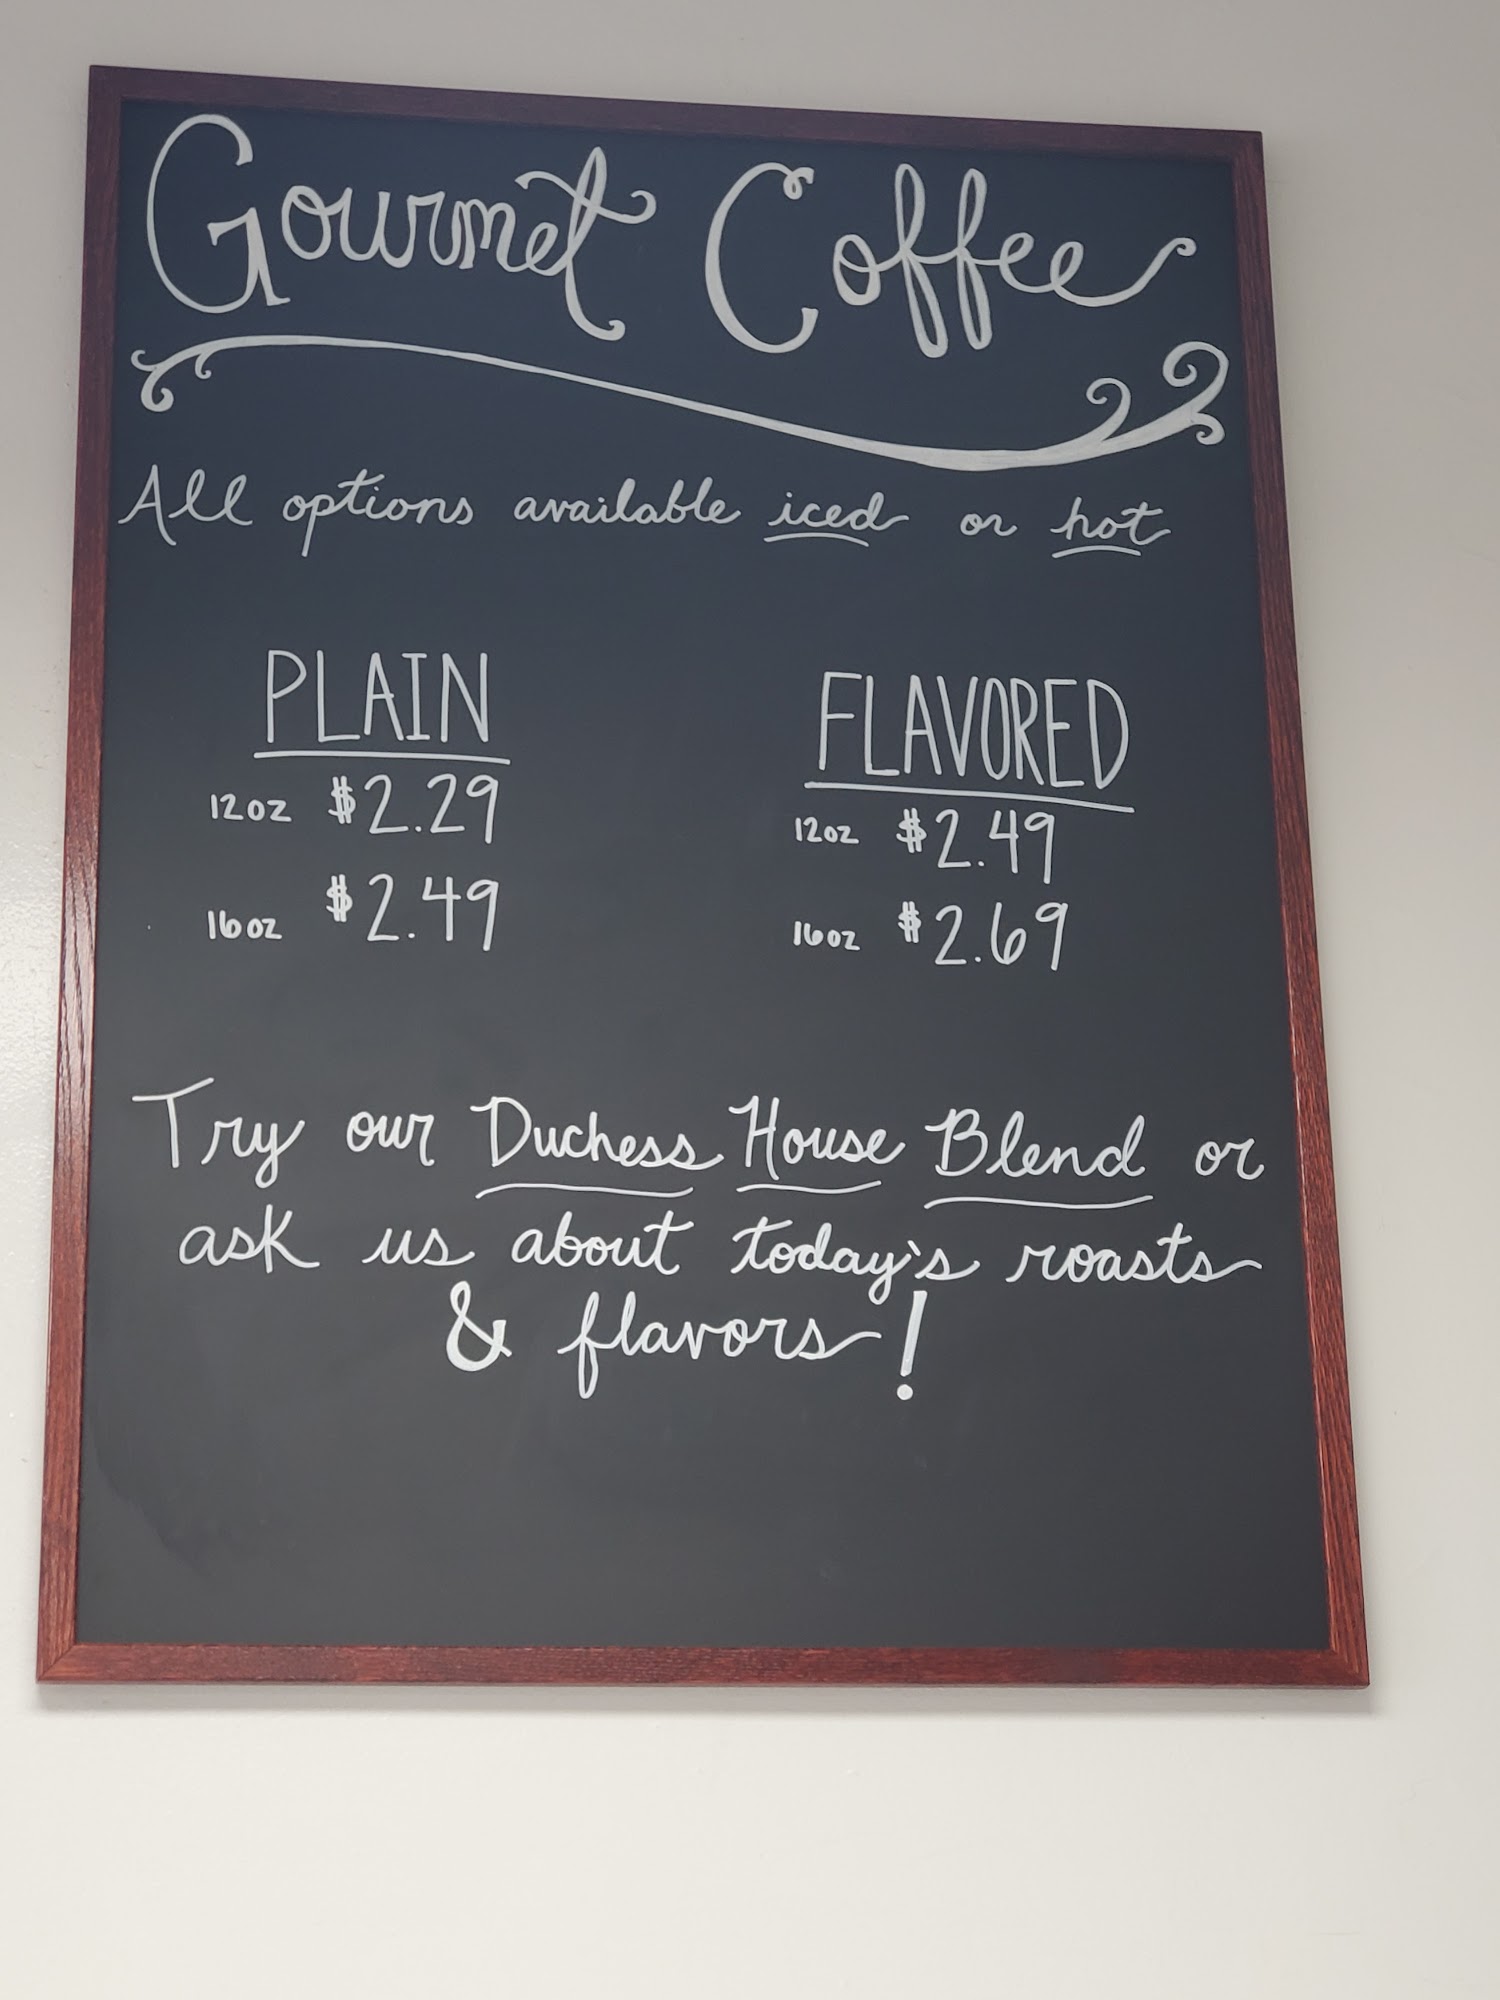 Gourmet Coffee
All options available iced or hot
PLAIN
12oz $2.29
16oz $2.49
FLAVORED
12oz $2.49
16oz $2.69
Try our Duchess House Blend or
ask us about today's roasts
& flavors!